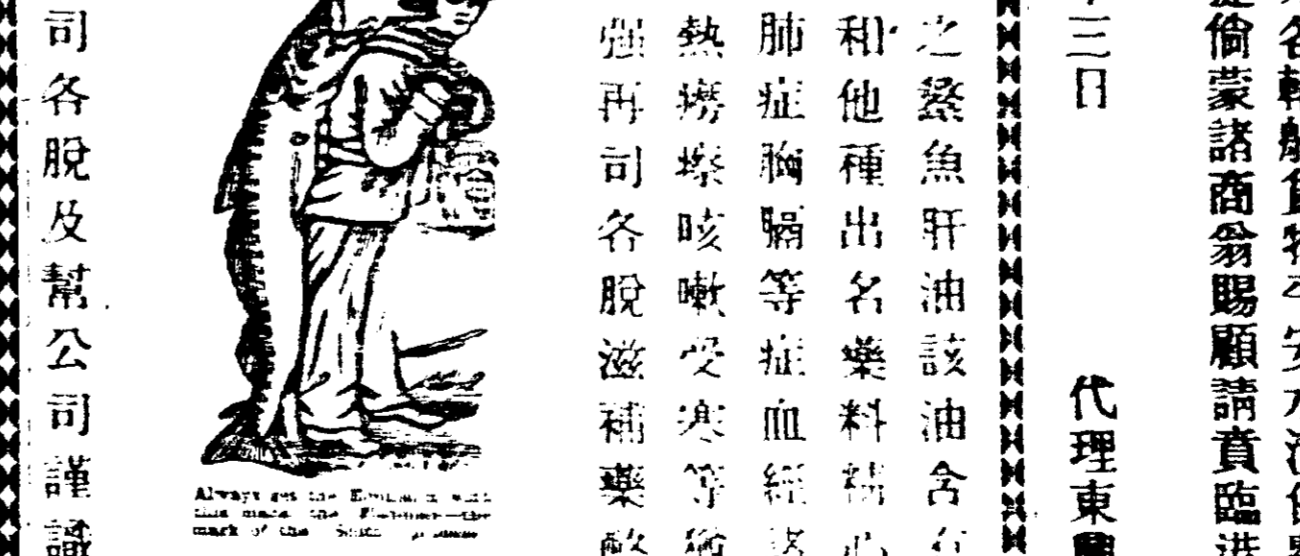 各
貨
安
倘蒙諸商翁賜顧請賁臨
三日
代理東
之鰵魚肝油該油含有
和他種出名藥料精心
肺症胸膈等症血經諸
熱癆瘵咳嗽受寒等
强再司各脫滋補藥
Always get the Emulsion with
this mark the Fisherman—the
mark of the Scott
司各脫及幫公司謹識